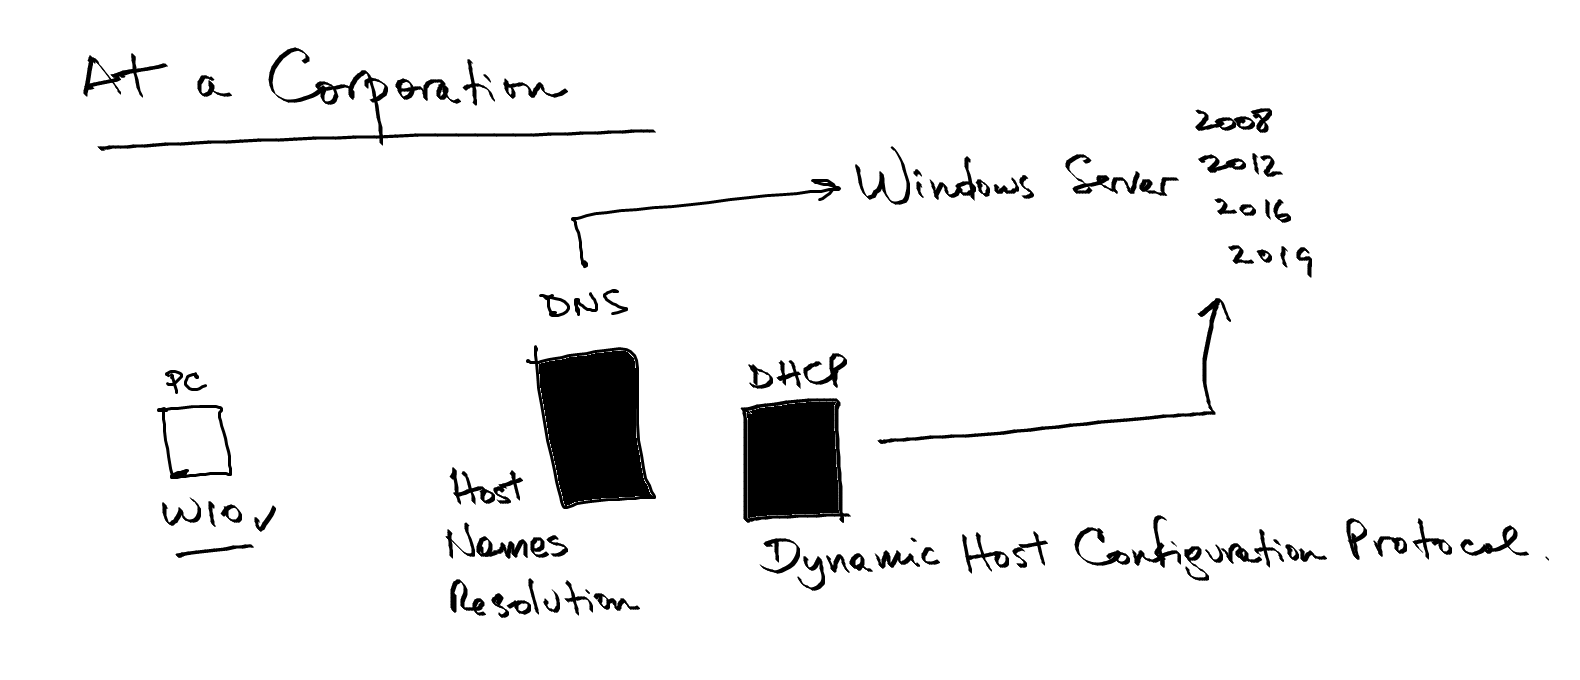 At a Corporation
2008
Windows Server
2012
2016
2019
DNS
PC
DHCP
W10
Host
Names
Resolution
Dynamic Host Configuration Protocol.